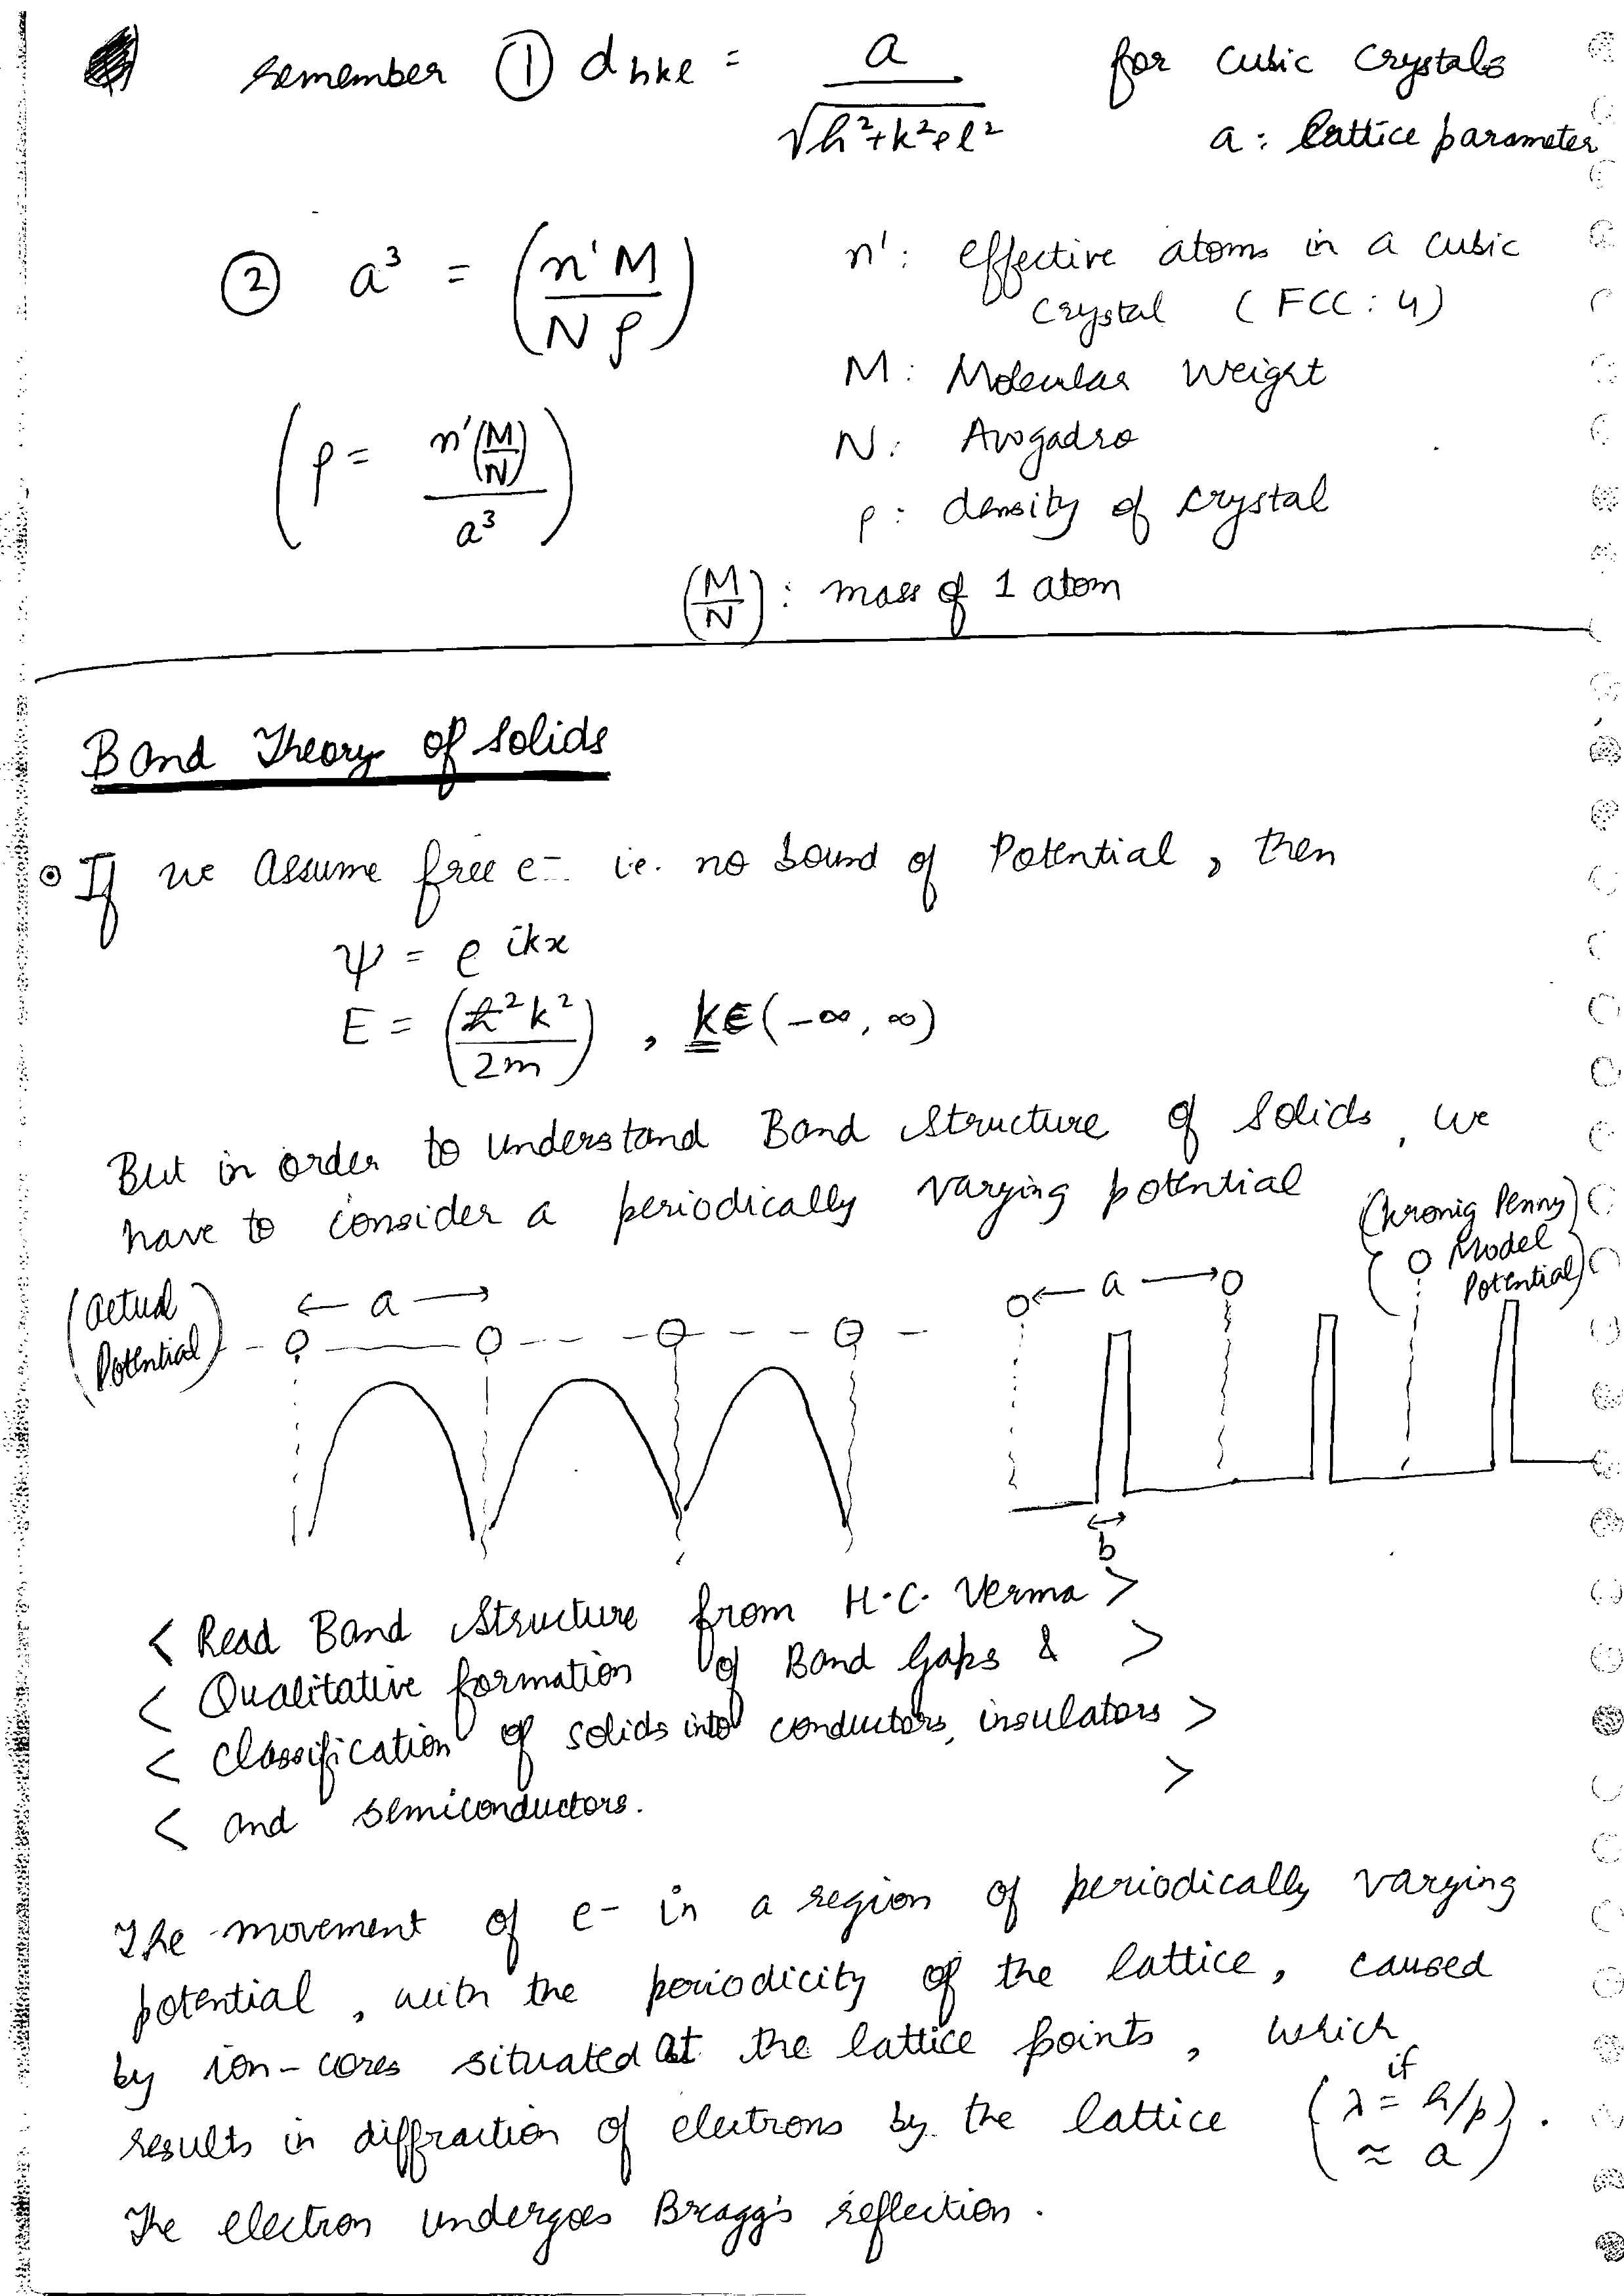 remember ① d hkl = a / √h²+k²+l² for cubic crystals
a : lattice parameter
② a³ = (n'M / Nρ) n' : effective atoms in a cubic
crystal (FCC : 4)
M : Molecular Weight
(ρ = n'(M/N) / a³) N : Avogadro
ρ : density of crystal
(M/N) : mass of 1 atom
Band Theory of Solids
If we assume free e- i.e. no bound of Potential, then
ψ = e^ikx
E = (ℏ²k² / 2m) , k∈(-∞, ∞)
But in order to understand Band Structure of Solids, we
have to consider a periodically varying potential
(Actual
Potential)
← a →
← a →
(Kronig Penny
Model
Potential)
b
< Read Band Structure from H.C. Verma >
< Qualitative formation of Band Gaps & >
< Classification of solids into conductors, insulators >
< and semiconductors. >
The movement of e- in a region of periodically varying
potential, with the periodicity of the lattice, caused
by ion-cores situated at the lattice points, which
results in diffraction of electrons by the lattice (if λ = h/p ≈ a).
The electron undergoes Bragg's reflection.